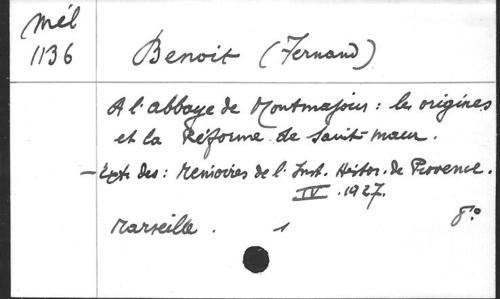 Mél
1136
Benoit (Fernand)
A l'abbaye de Montmajour : les origines
et la Réforme de Saint-Maur.
- Extr. des : Mémoires de l'Inst. Histor. de Provence.
IV. 1927.
Marseille. 1 8°